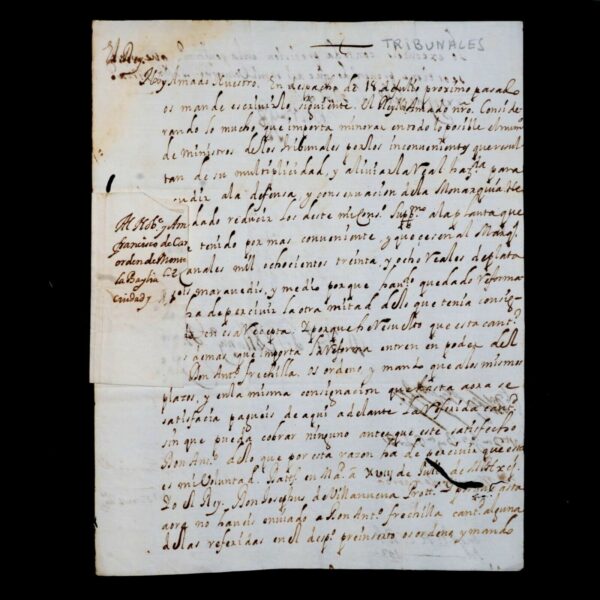 TRIBUNALES
El Rey
Amado Nuestro. En despacho de 18 de Julio proximo pasado
os mande escrivir lo siguiente. El Rey Amado nro. Conside-
rando lo mucho que importa minorar en todo lo posible el num.
de Ministros de los Tribunales por los inconvenientes que resul-
tan de su multiplicidad, y aliviar la Real haz.da para
acudir a la defensa, y conservacion de la Monarquia he
mandado reducir los deste mi Cons.o Sup.mo a la planta que
he tenido por mas conveniente y que cese
Canales mil ochocientos treinta, y ocho reales de plata
maravedis, y medio porque han quedado reforma
ha de percivir la otra mitad de lo que tenia consig-
en esa Recepta. Y porque he resuelto que esta cant.d
demas que importa la reforma entren en poder de D.
Don Ant.o frechilla. os ordeno, y mando que a los mismos
plazos, y en la misma consignacion que hasta aora se
satisfacia pagueis de aqui adelante la referida cant.d
sin que pueda cobrar ninguno antes que este satisfecho
Don Ant.o de lo que por esta razon ha de percivir que esta
es mi voluntad. Datt. en Mad. a XVIIJ de Julio de
Yo el Rey. Don Josephus de Villanueva Prott. Y porque hasta
aora no haveis enviado a Don Ant.o frechilla cant.d alguna
de las referidas en el desp.o preinserto os ordeno, y mando
Al M. y Am
francisco de
orden de Mont
la Baylia
Ciudad